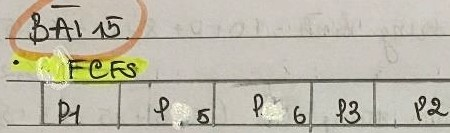 BÀI 15
FCFS
P1 P5 P6 P3 P2